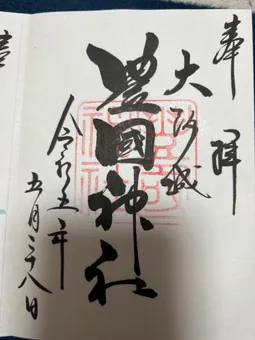 奉拝
大阪城
豊國神社
令和五年
五月二十八日